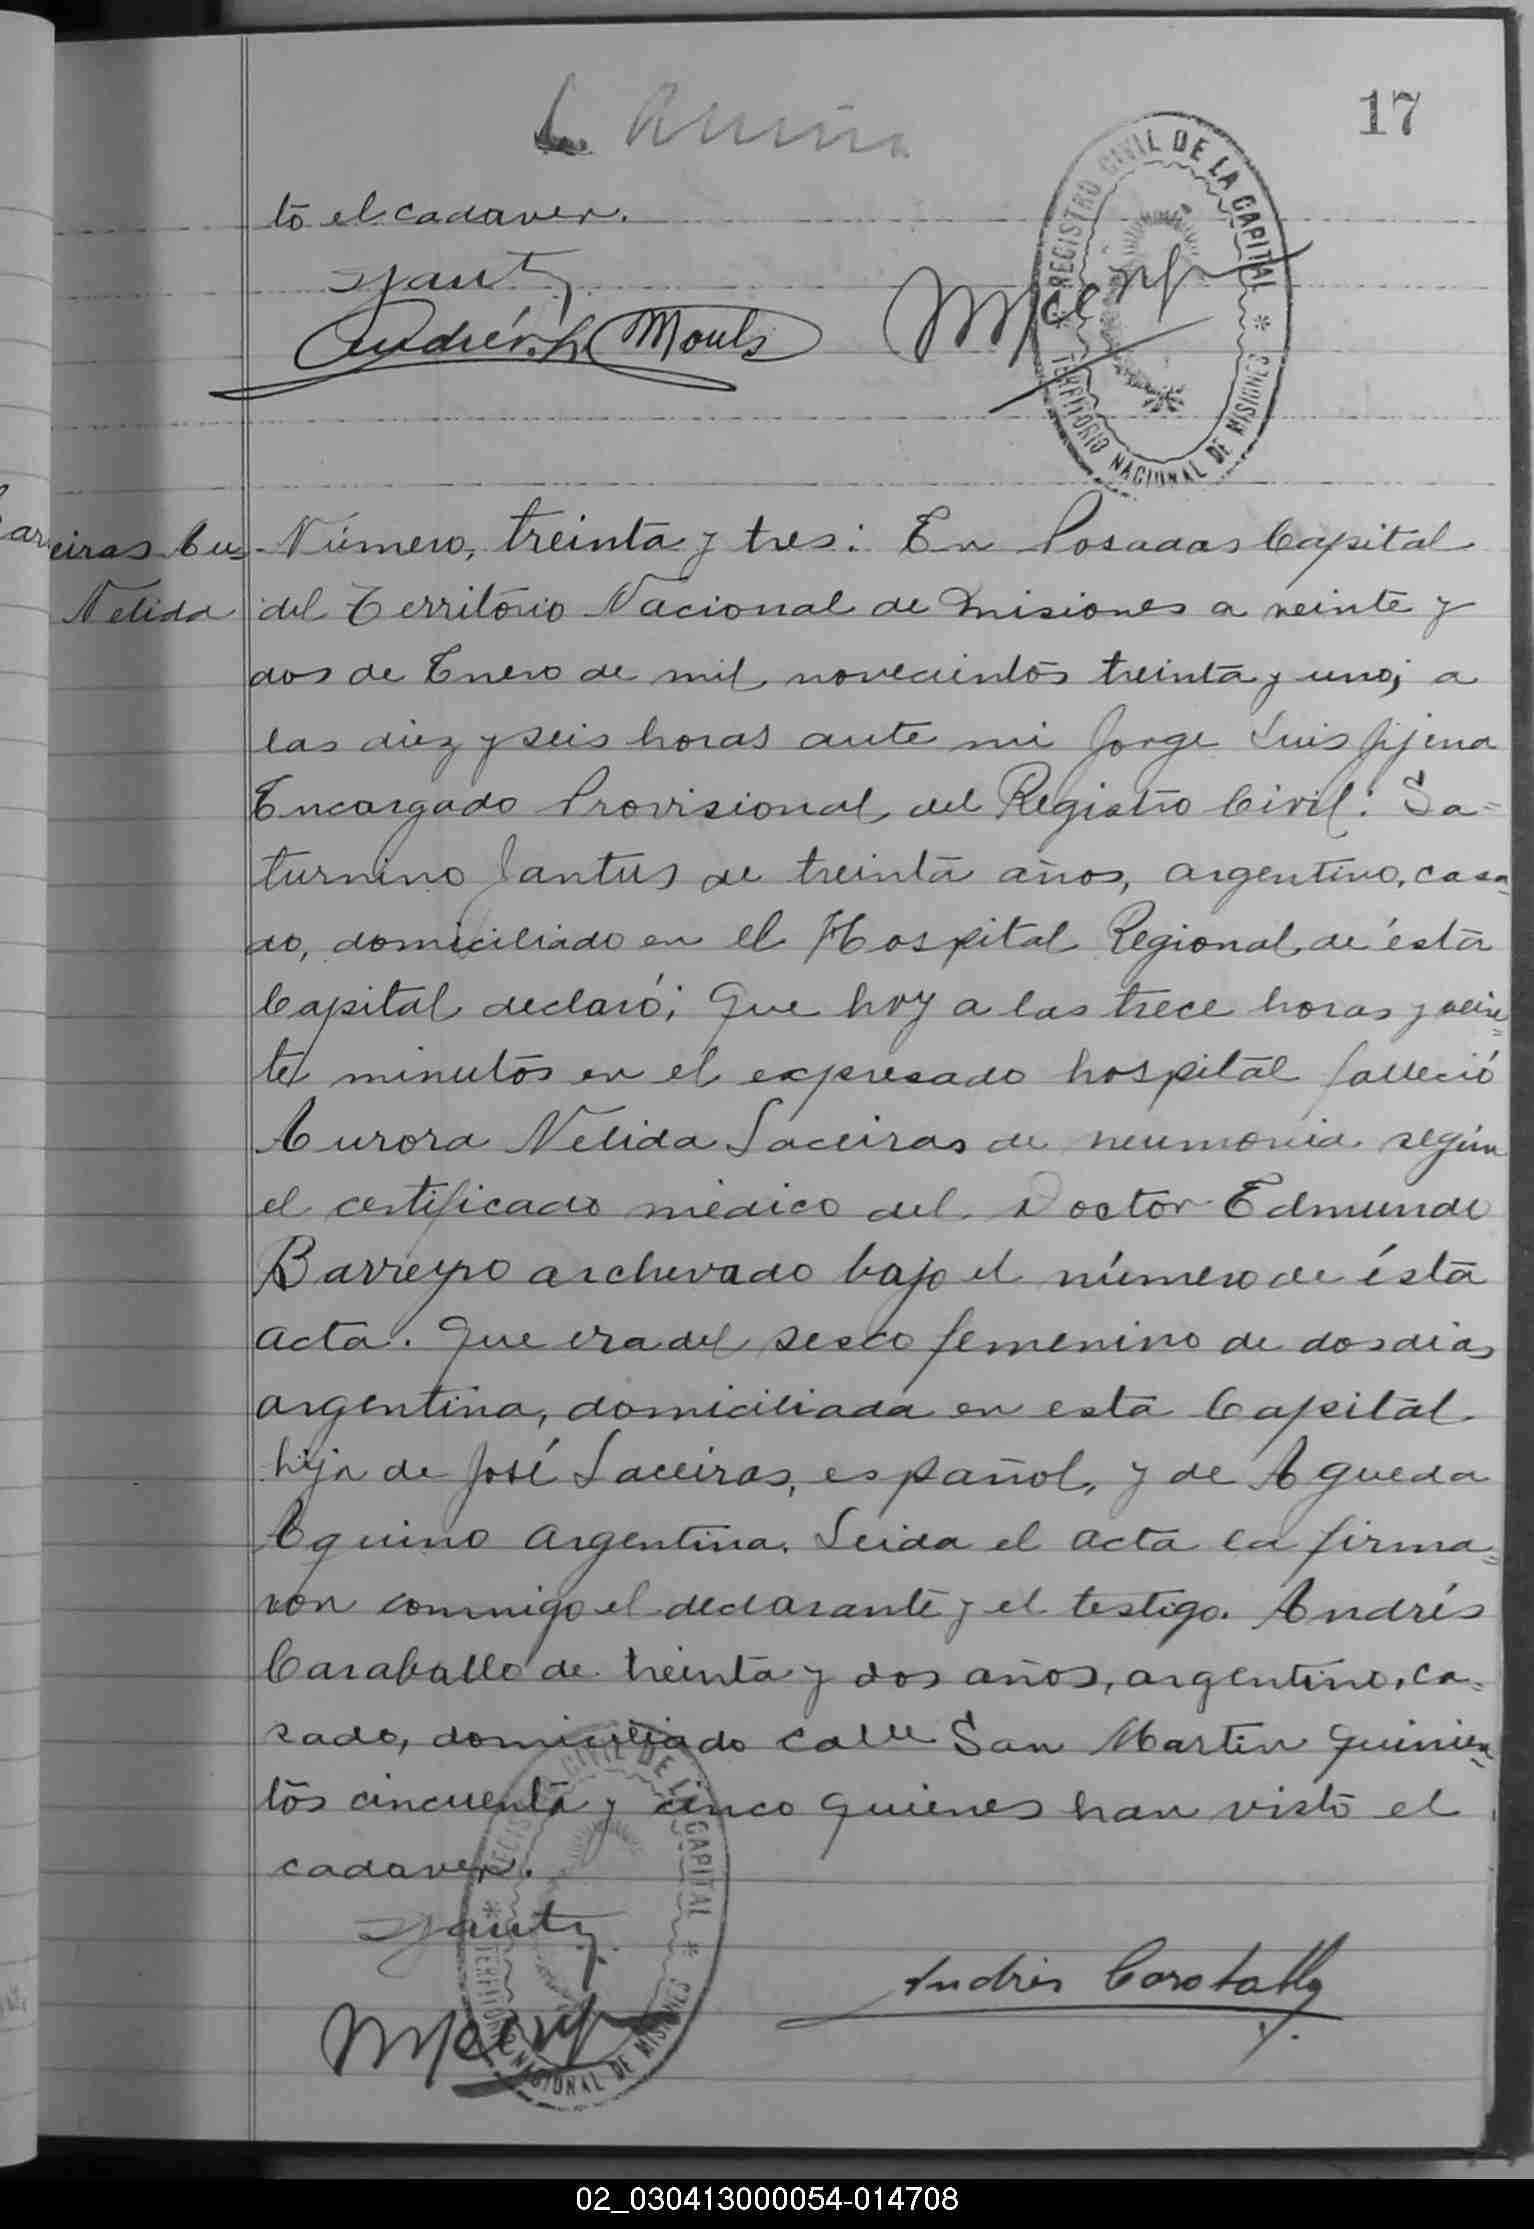 17
REGISTRO CIVIL DE LA CAPITAL
* TERRITORIO NACIONAL DE MISIONES *
to el cadaver.
Mouls
eiras Au=
Nelida
Número, treinta y tres: En Posadas Capital
del Territorio Nacional de Misiones a veinte y
dos de Enero de mil novecientos treinta y uno; a
las diez y seis horas ante mi Jorge Luis Jijena
Encargado Provisional del Registro Civil: Sa=
turnino Jantus de treinta años, argentino, casa=
do, domiciliado en el Hospital Regional de ésta
Capital declaró; Que hoy a las trece horas y vein=
te minutos en el expresado hospital falleció
Aurora Nelida Laceiras de neumonia según
el certificado médico del Doctor Edmundo
Barreyro archivado bajo el número de ésta
acta. Que era del sexo femenino de dos dias
argentina, domiciliada en esta Capital
hija de José Laceiras, español, y de Agueda
Aquino argentina. Leida el acta la firma=
ron conmigo el declarante y el testigo. Andrés
Caraballo de treinta y dos años, argentino, ca=
sado, domiciliado calle San Martin quinien=
tos cincuenta y cinco quienes han visto el
cadaver.
REGISTRO CIVIL DE LA CAPITAL
* TERRITORIO NACIONAL DE MISIONES *
Andrés Caraballo
02_030413000054-014708